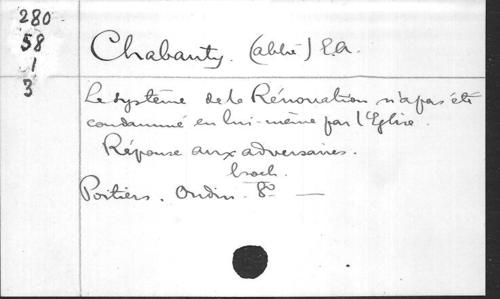 280
58
1
3
Chabauty. (abbé) E.A.
Le système de la Rénovation n'a pas été
condamné en lui-même par l'Eglise.
Réponse aux adversaires.
broch.
Poitiers. Oudin. 8º —